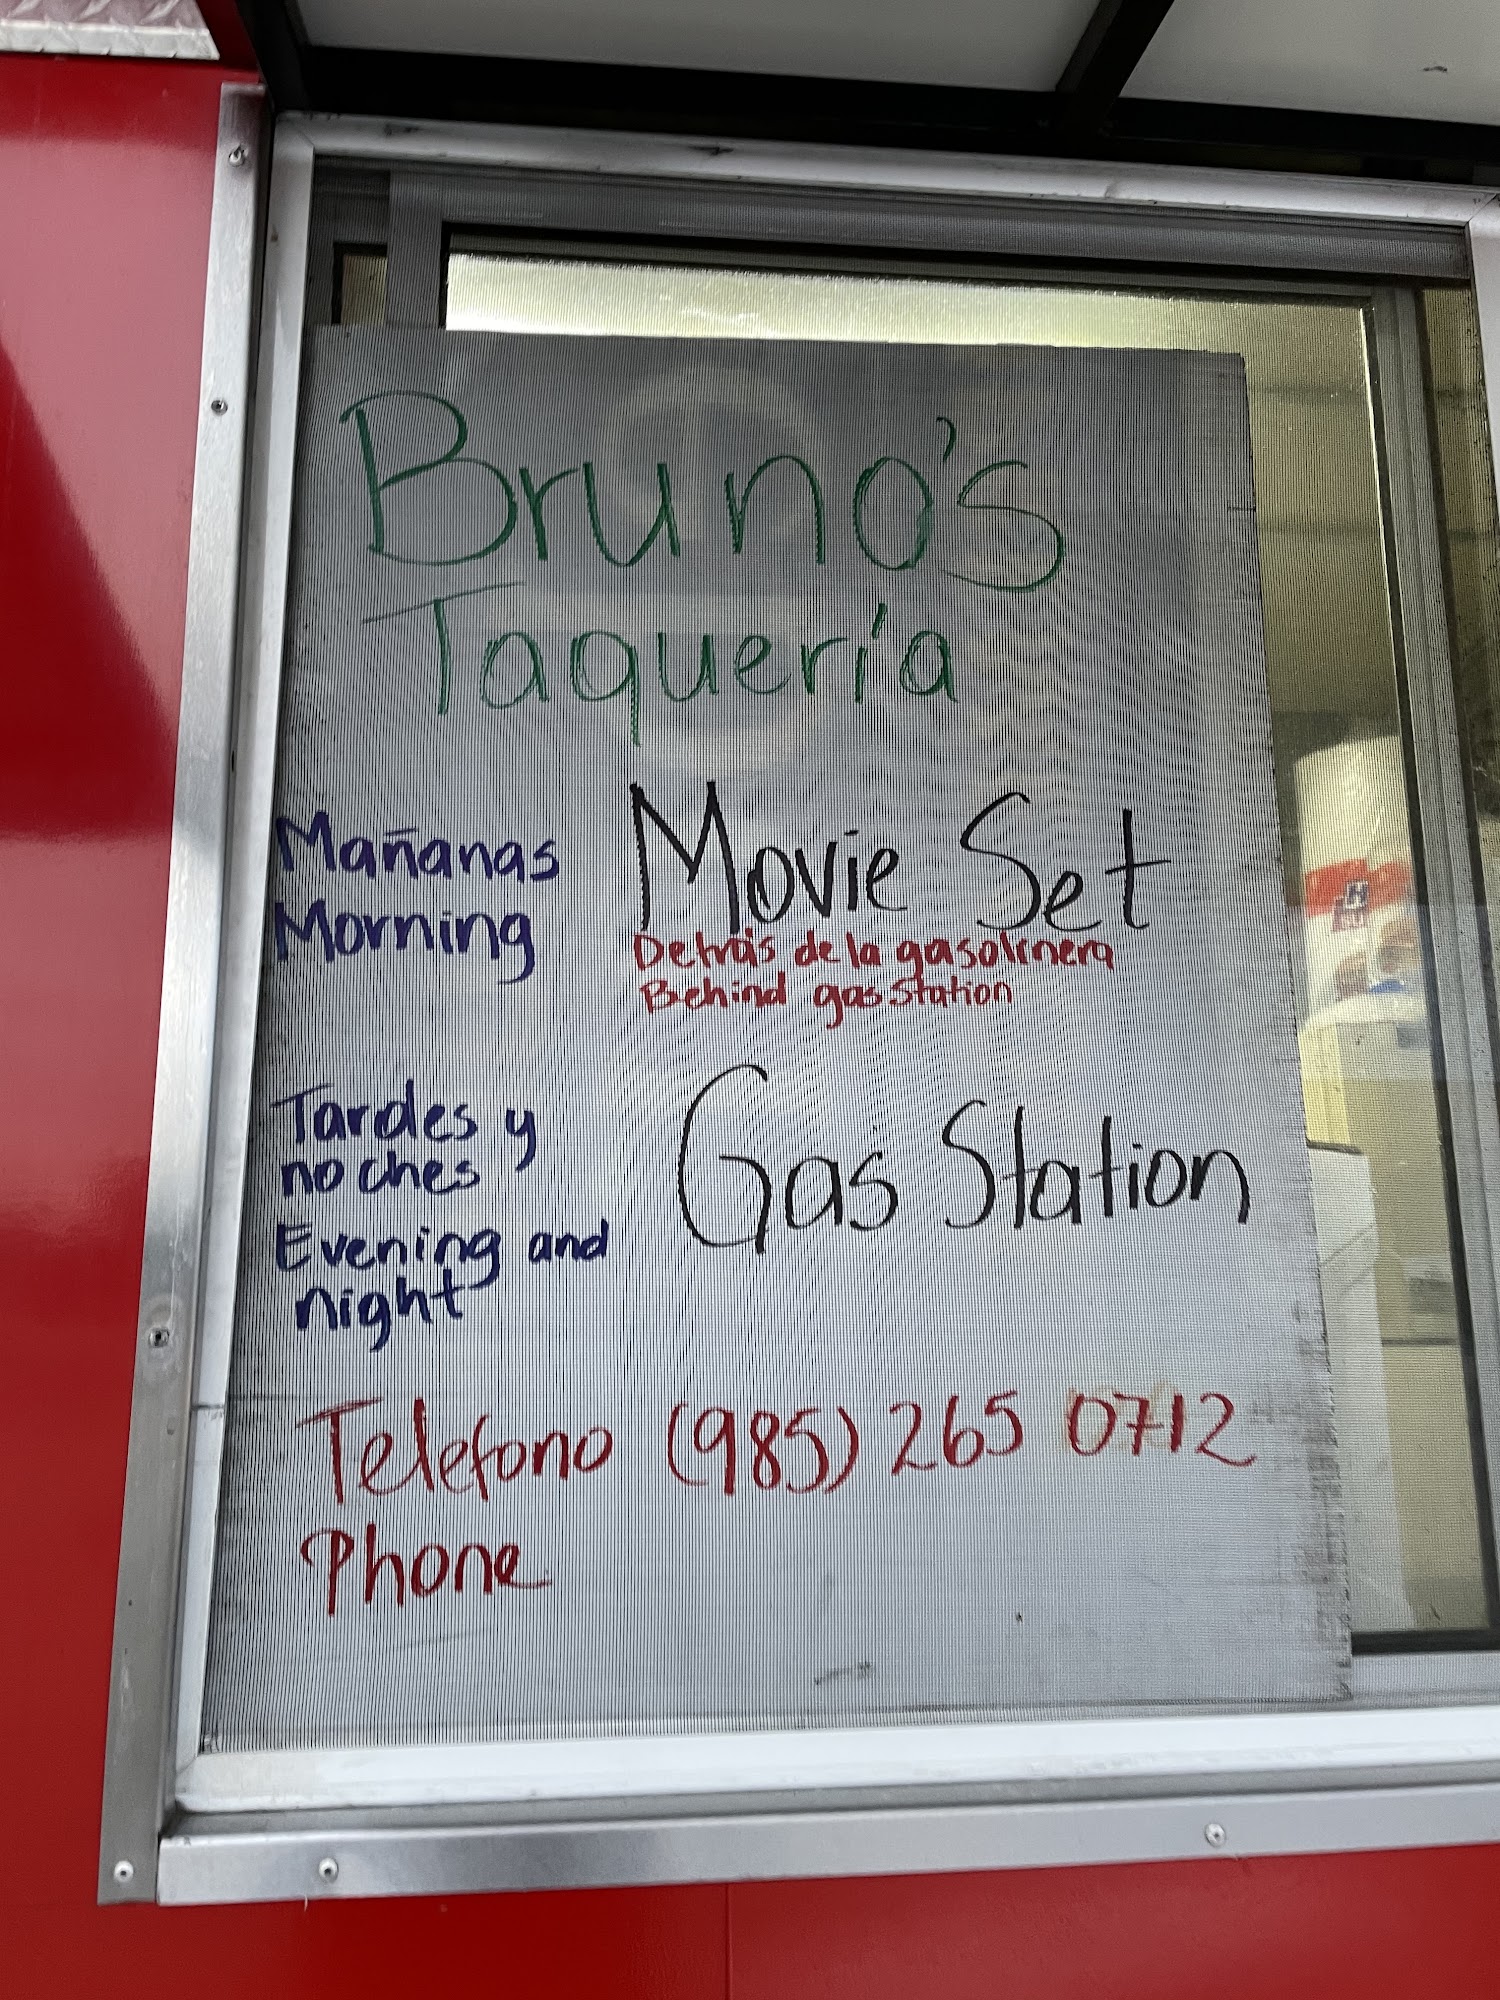 Bruno's
Taquería
Mañanas
Morning
Movie Set
Detrás de la gasolinera
Behind gas station
Tardes y
noches
Evening and
night
Gas Station
Telefono (985) 265 0712
Phone